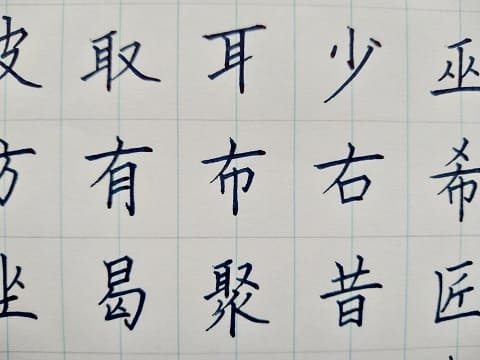 皮取耳少巫
方有布右希
坐曷聚昔匠